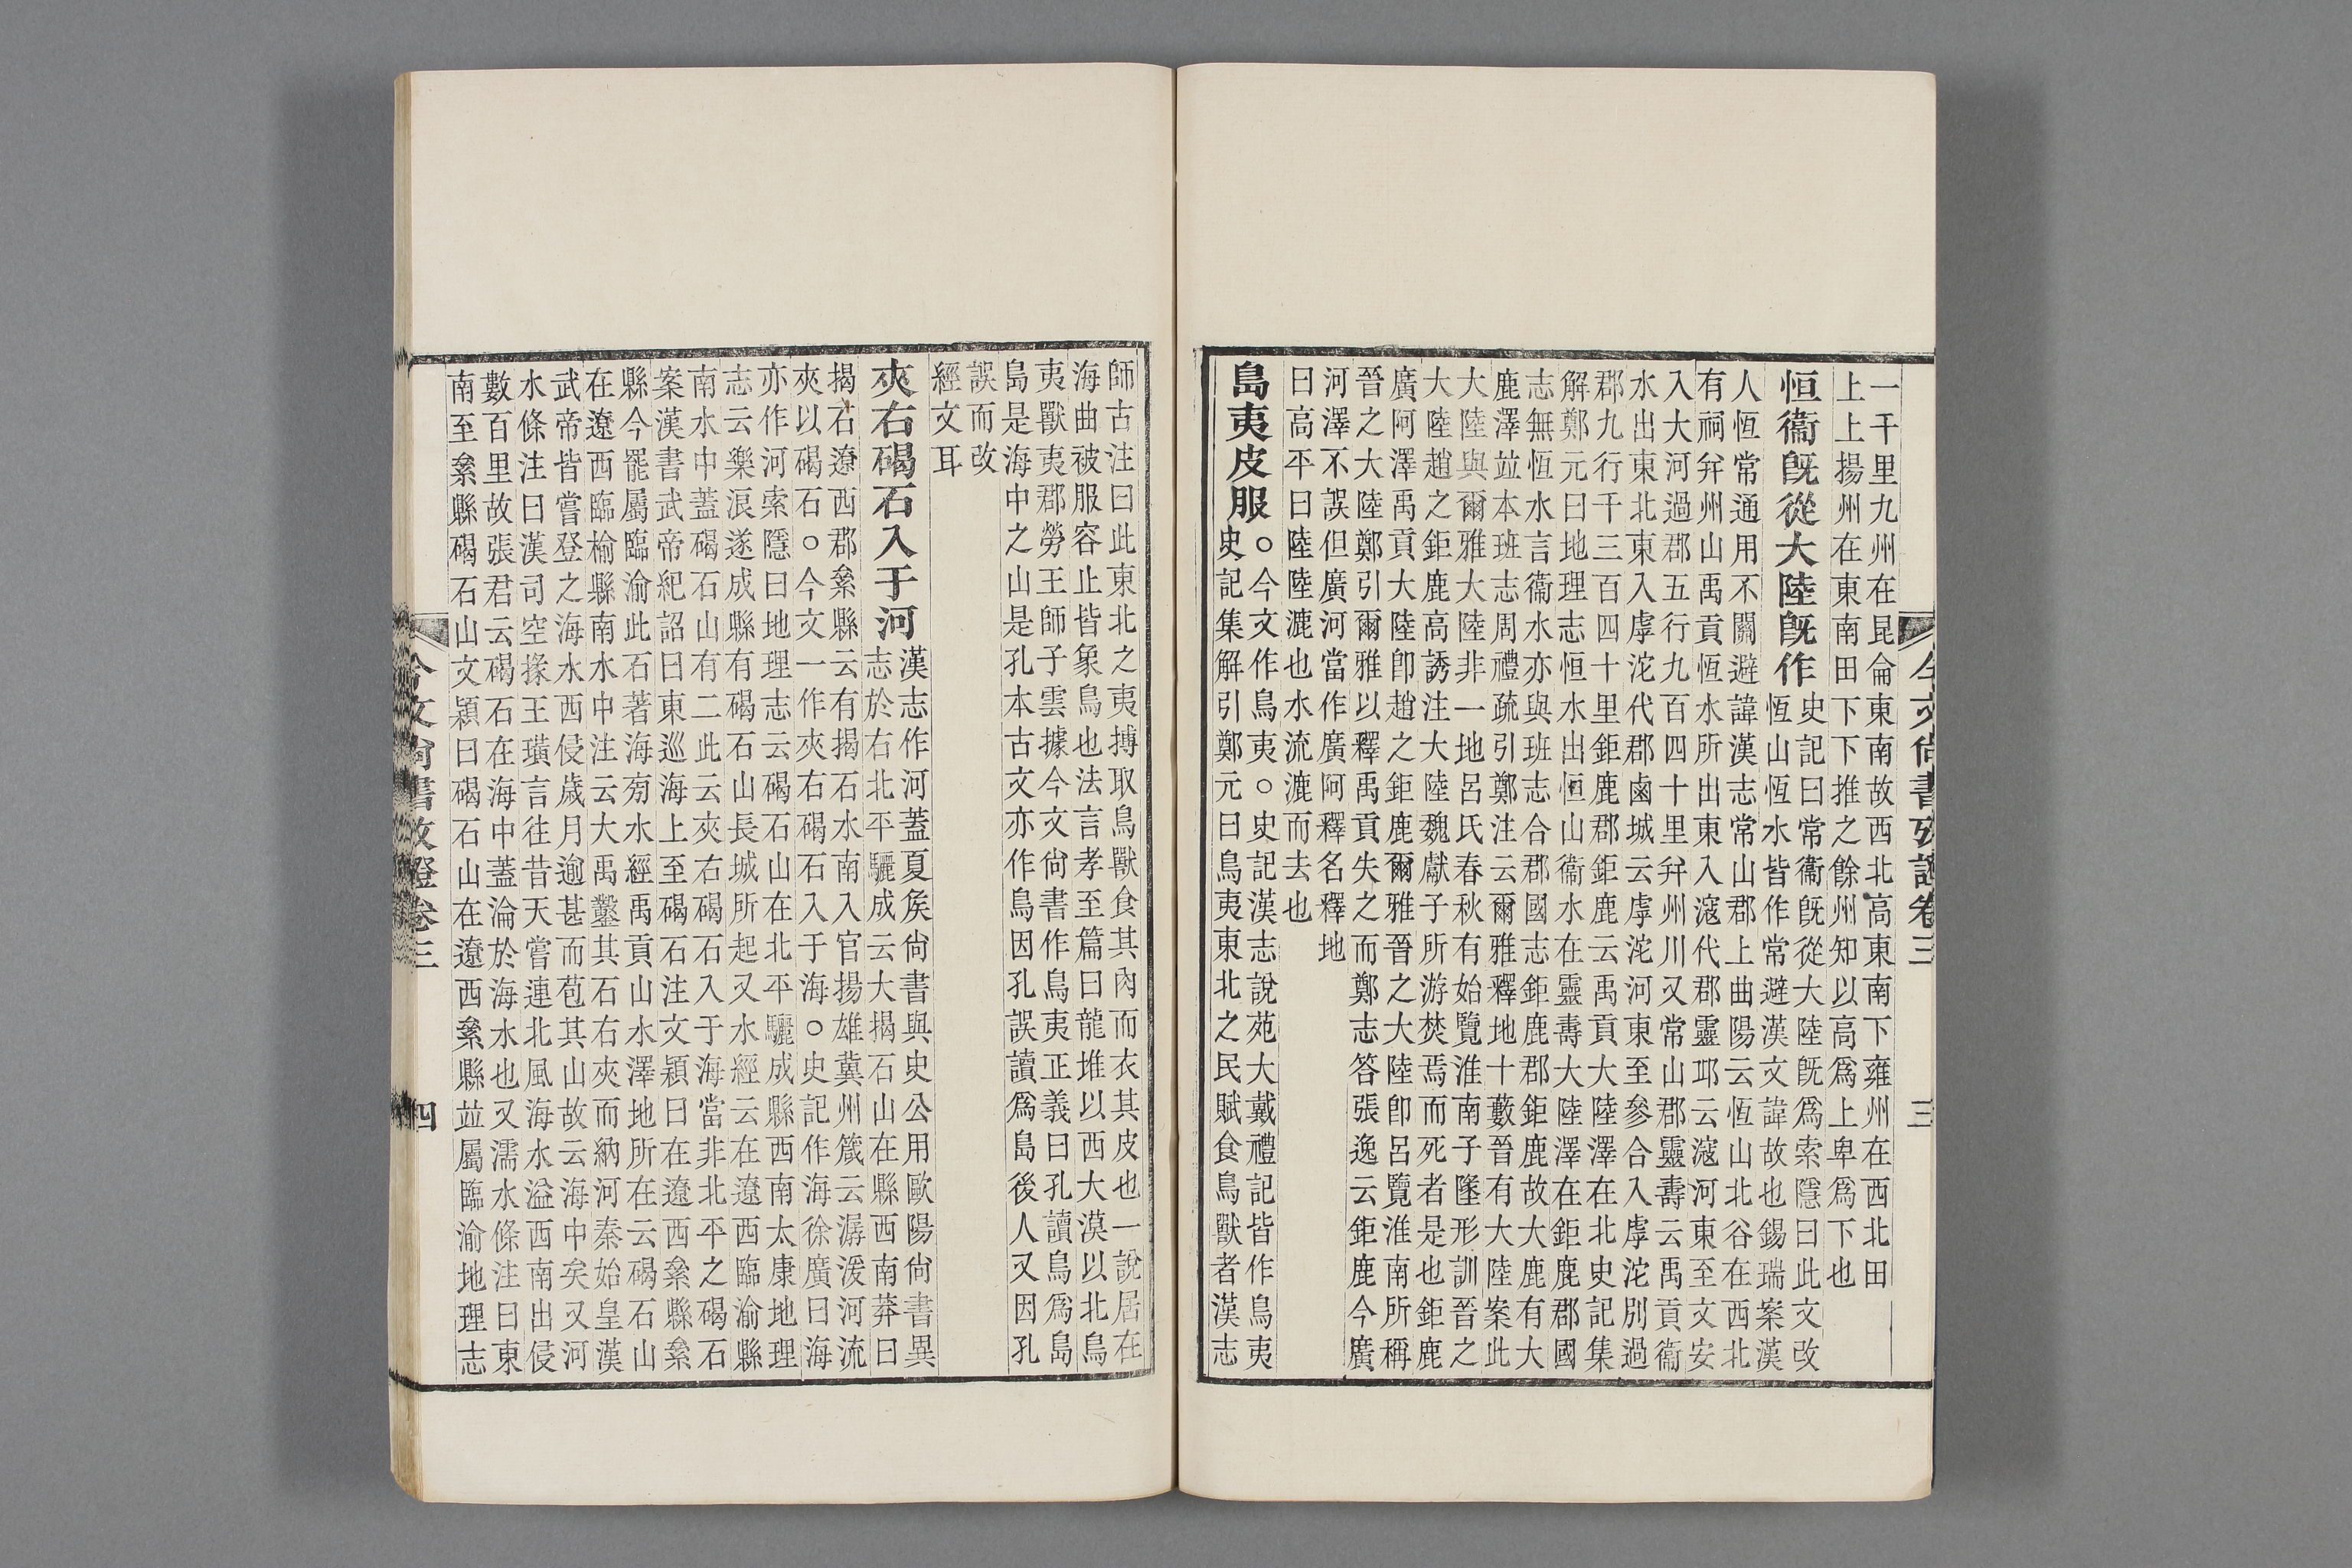 今文尚書攷證卷三 三
一千里九州在昆侖東南故西北高東南下雍州在西北田
上上揚州在東南田下下推之餘州知以高爲上卑爲下也
恒衞旣從大陸旣作
史記曰常衞旣從大陸旣爲索隱曰此文改
恆山恆水皆作常避漢文諱故也錫瑞案漢
人恆常通用不關避諱漢志常山郡上曲陽云恆山北谷在西北
有祠幷州山禹貢恆水所出東入滱代郡靈邱云滱河東至文安
入大河過郡五行九百四十里幷州川又常山郡靈壽云禹貢衞
水出東北東入虖沱代郡鹵城云虖沱河東至參合入虖沱別過
郡九行千三百四十里鉅鹿郡鉅鹿云禹貢大陸澤在北史記集
解鄭元曰地理志恒水出恒山衞水在靈壽大陸澤在鉅鹿郡國
志無恆水言衞水亦與班志合郡國志鉅鹿郡鉅鹿故大鹿有大
鹿澤並本班志周禮疏引鄭注云爾雅釋地十藪晉有大陸案此
大陸與爾雅大陸非一地呂氏春秋有始覽淮南子墬形訓晉之
大陸趙之鉅鹿高誘注大陸魏獻子所游焚焉而死者是也鉅鹿
廣阿澤禹貢大陸卽趙之鉅鹿爾雅晉之大陸卽呂覽淮南所稱
晉之大陸鄭引爾雅以釋禹貢失之而鄭志答張逸云鉅鹿今廣
河澤不誤但廣河當作廣阿釋名釋地
曰高平曰陸陸漉也水流漉而去也
島夷皮服
○今文作鳥夷○史記漢志說苑大戴禮記皆作鳥夷
史記集解引鄭元曰鳥夷東北之民賦食鳥獸者漢志
師古注曰此東北之夷搏取鳥獸食其肉而衣其皮也一說居在
海曲被服容止皆象鳥也法言孝至篇曰龍堆以西大漠以北鳥
夷獸夷郡勞王師子雲據今文尚書作鳥夷正義曰孔讀鳥爲島
島是海中之山是孔本古文亦作鳥因孔誤讀爲島後人又因孔
誤而改
經文耳
夾右碣石入于河
漢志作河蓋夏矦尚書與史公用歐陽尚書異
志於右北平驪成云大揭石山在縣西南莽曰
揭石遼西郡絫縣云有揭石水南入官揚雄冀州箴云潺湲河流
夾以碣石○今文一作夾右碣石入于海○史記作海徐廣曰海
亦作河索隱曰地理志云碣石山在北平驪成縣西南太康地理
志云樂浪遂成縣有碣石山長城所起又水經云在遼西臨渝縣
南水中蓋碣石山有二此云夾右碣石入于海當非北平之碣石
案漢書武帝紀詔曰東巡海上至碣石注文穎曰在遼西絫縣絫
縣今罷屬臨渝此石著海旁水經禹貢山水澤地所在云碣石山
在遼西臨榆縣南水中注云大禹鑿其石右夾而納河秦始皇漢
武帝皆嘗登之海水西侵歲月逾甚而苞其山故云海中矣又河
水條注曰漢司空掾王璜言往昔天嘗連北風海水溢西南出侵
數百里故張君云碣石在海中蓋淪於海水也又濡水條注曰東
南至絫縣碣石山文穎曰碣石山在遼西絫縣並屬臨渝地理志
今文尚書攷證卷三 四